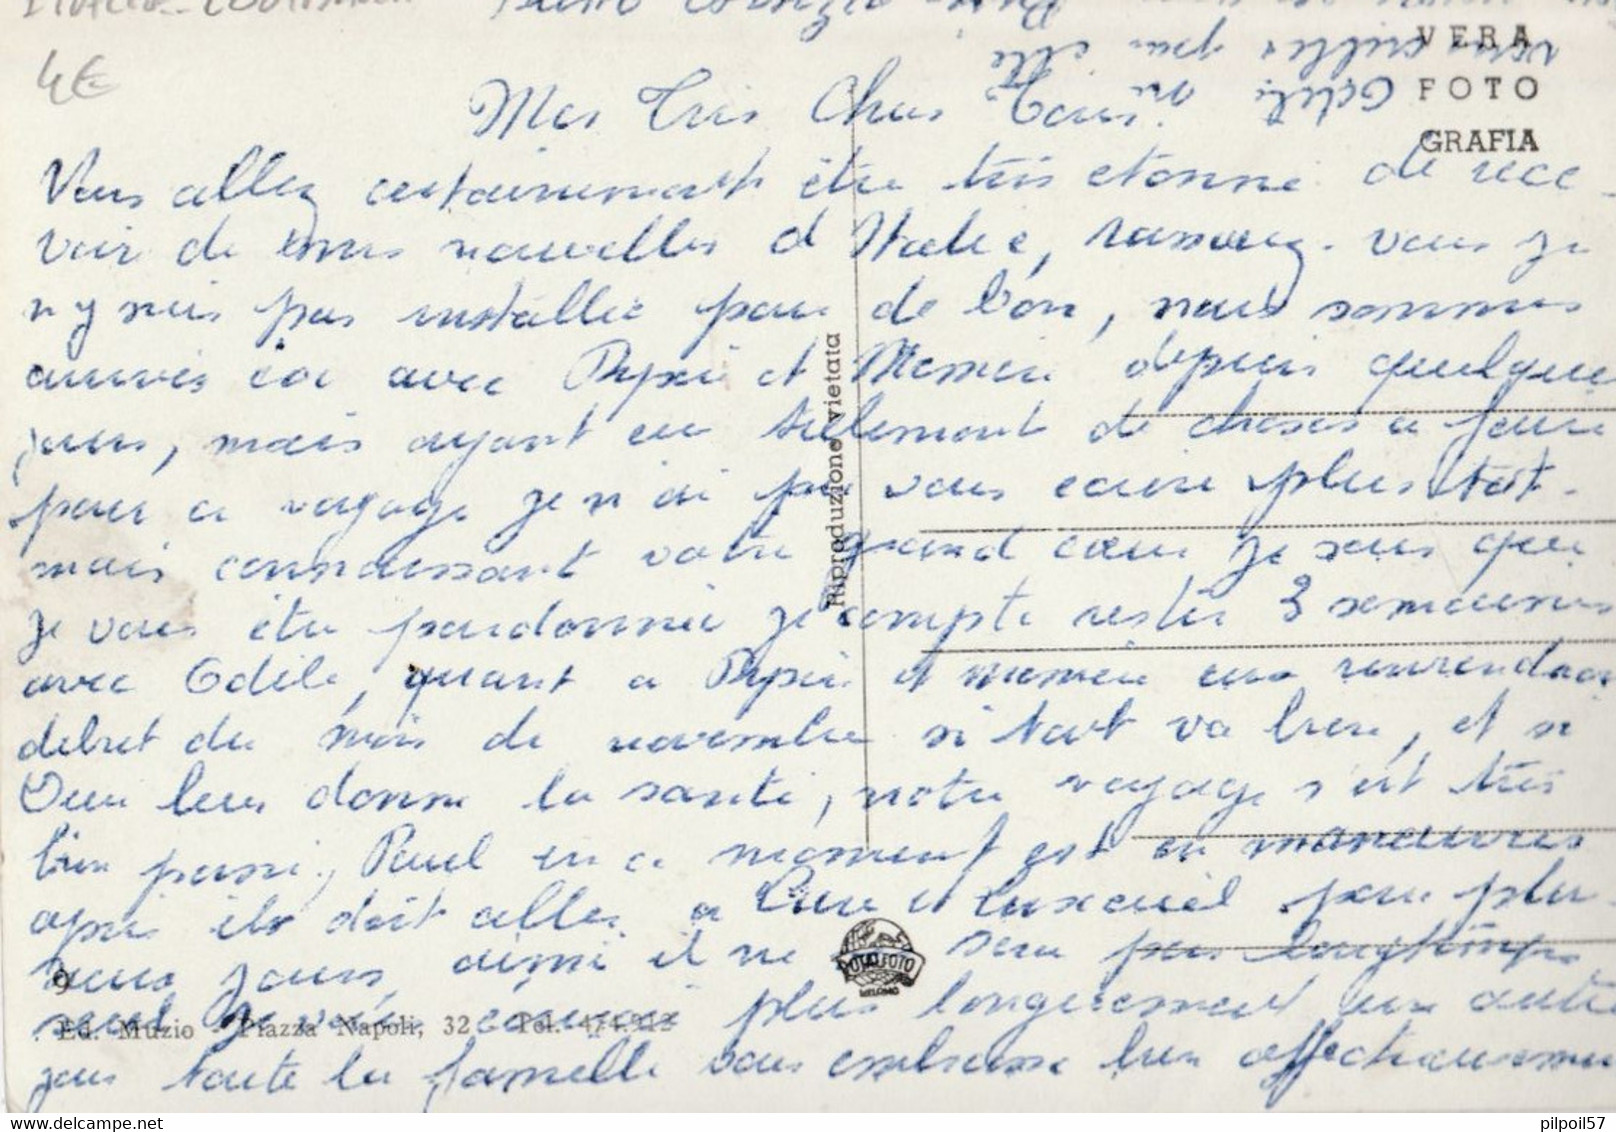 4€
VERA
FOTO
GRAFIA
Mes Tres Chers Tous.
Vous allez certainement être très etonné de rece-
voir de mes nouvelles d'Italie, rassurez-vous je
n'y suis pas installée pour de bon, nous sommes
arrivés ici avec Pepère et Memere depuis quelques
jours, mais ayant eu tellement de choses a faire
pour ce voyage je n'ai pu vous ecrire plus tôt.
mais connaissant votre grand cœur je sais que
je vais être pardonnée je compte rester 3 semaines
avec Odile, quant a Pepère et memère eux reviendrons
debut du mois de novembre si tout va bien, et si
Dieu leur donne la santé, notre voyage s'est très
bien passé, Paul en ce moment est en manœuvres
après ils doit aller a Lure et Luxeuil pour plu-
sieurs jours, ainsi il ne sera pas longtemps
seul je vous ecrirai plus longuement un autre
jour toute la famille vous embrasse bien affectueusement
Odile
Riproduzione vietata
TOTALFOTO
MILANO
9
Ed. Muzio - Piazza Napoli, 32 - Tel. 474.912
pilpoil57